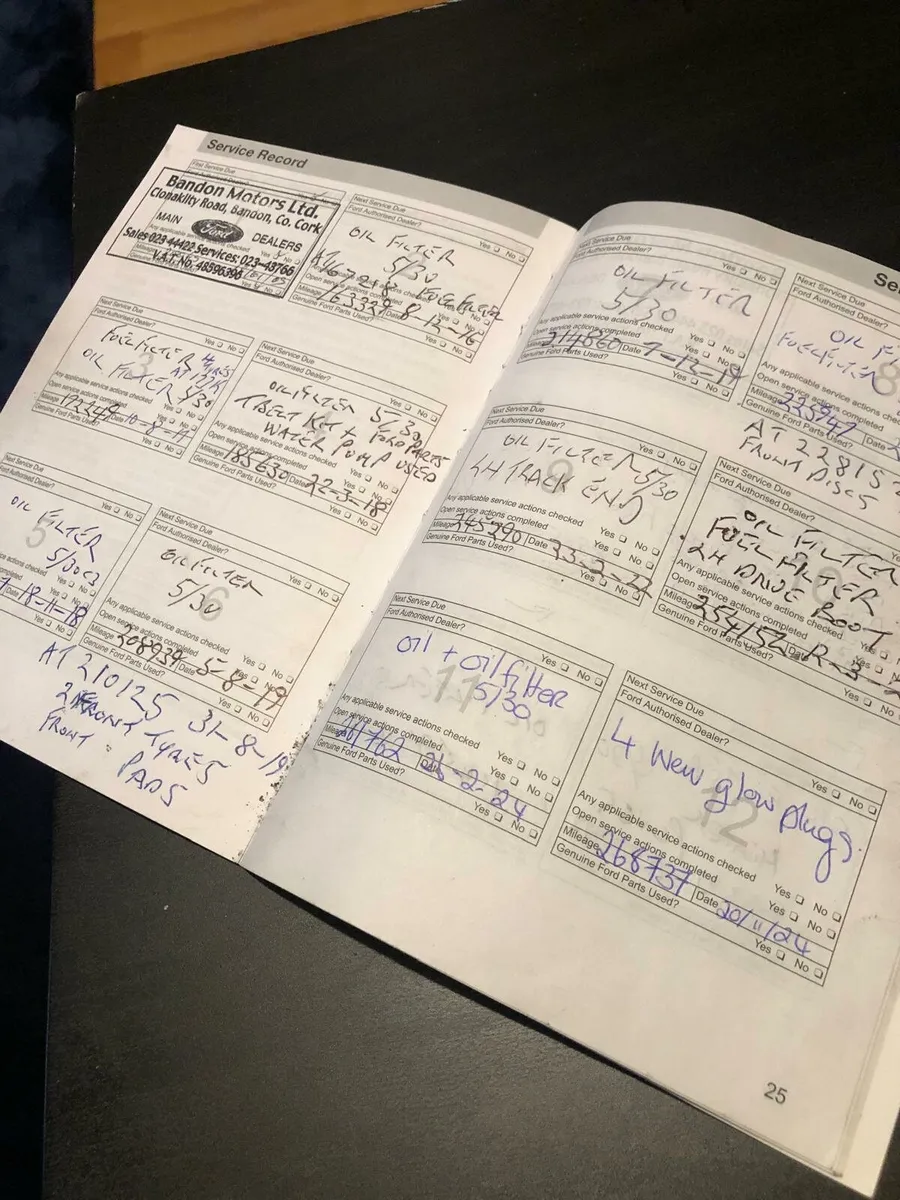 Service Record
First Service Due
Bandon Motors Ltd.
Clonakilty Road, Bandon, Co. Cork
MAIN Ford DEALERS
Sales 023-44422 Services: 023-43766
V.A.T. No.
Next Service Due
Ford Authorised Dealer?
Yes No
OIL FILTER
5/30
FUEL FILTER
Any applicable service actions checked
Open service actions completed
Mileage 163329 Date 8-12-16
Genuine Ford Parts Used? Yes No
Next Service Due
Ford Authorised Dealer?
Yes No
FUEL FILTER 4 TYRES
OIL FILTER 5/30
Any applicable service actions checked
Open service actions completed
Mileage Date
Genuine Ford Parts Used? Yes No
Next Service Due
Ford Authorised Dealer?
Yes No
OIL FILTER 5/30
TBELT KIT + FORD PARTS
WATER PUMP USED
Any applicable service actions checked
Open service actions completed
Mileage 185630 Date 22-3-18
Genuine Ford Parts Used? Yes No
Next Service Due
Ford Authorised Dealer?
Yes No
OIL FILTER
5
5/30
Date 18-11-18
Yes No
Next Service Due
Ford Authorised Dealer?
Yes No
OIL FILTER
6
5/30
Any applicable service actions checked
Open service actions completed
Mileage 208934 Date 5-8-19
Genuine Ford Parts Used? Yes No
AT 210125 31-8-19
2 FRONT TYRES
FRONT PADS
Next Service Due
Ford Authorised Dealer?
Yes No
OIL FILTER
5/30
Any applicable service actions checked
Open service actions completed
Mileage 214860 Date 7-12-19
Genuine Ford Parts Used? Yes No
Next Service Due
Ford Authorised Dealer?
OIL
FUEL FILTER
8
Any applicable service actions
Open service actions completed
Mileage Date
Genuine Ford Parts Used?
AT 22815
FRONT DISCS
Next Service Due
Ford Authorised Dealer?
Yes No
OIL FILTER 5/30
9
LH TRACK END
Any applicable service actions checked
Open service actions completed
Mileage 245290 Date
Genuine Ford Parts Used? Yes No
Next Service Due
Ford Authorised Dealer?
OIL FILTER
FUEL FILTER
LH DRIVE BOOT
Any applicable service actions checked
Open service actions completed
Mileage 254152 Date
Genuine Ford Parts Used? Yes No
Next Service Due
Ford Authorised Dealer?
Yes No
Oil + Oil filter
11
5/30
Any applicable service actions checked
Open service actions completed
Mileage Date 25-2-24
Genuine Ford Parts Used? Yes No
Next Service Due
Ford Authorised Dealer?
Yes No
4 New glow plugs
12
Any applicable service actions checked
Open service actions completed
Mileage 268737 Date 20/11/24
Genuine Ford Parts Used? Yes No
25